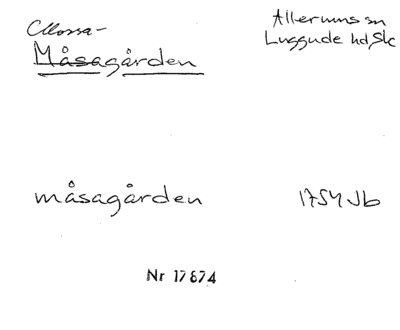 Mossa-
Måsagården
Allerums sn
Luggude hd, Sk
måsagården
1754 Jb
Nr 17874